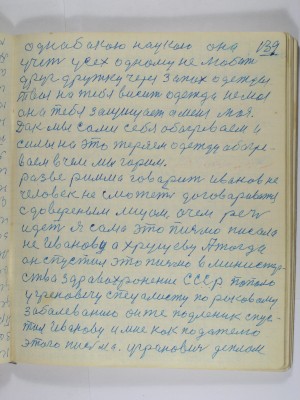 однобокою наукою она 139
учит усех одному не любит
друг дружку через запах одежды
твоя на тебя висит одежда не моя
она тебя защищает а меня моя
Дак мы сами себя обогреваем и
силы на это теряем одежду обогре-
ваем в чем мы горим.
разве римма говарит иванов не
человек не сможеть договариватся
с довереным лицом о чем речь
идет я сама это письмо писала
не Иванову а хрущеву А тогда
он спустил это письмо в министер
ства здравохронение СССР попало
специалисту по раковому
заболеванию он же подленик спус-
тил иванову и мне как подателю
этого письма. диплом